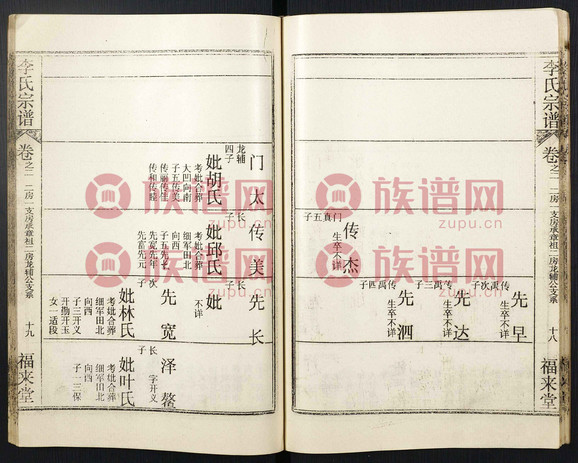 李氏宗谱
卷之二 二房一支房承章祖二房龙辅公支系
十八
福来堂
门真五子
传杰
生卒不详
传禹次子
先早
生卒不详
传禹三子
先达
生卒不详
传禹四子
先泗
生卒不详
龙辅四子
门太
妣胡氏
考妣合葬
大凹向南
子五传美
传丽传佳
传和传睦
长子
传美
妣邱氏
考妣合葬
细军田北
向西
子五先长
先宽先年
先富先元
长子
先长
妣
不详
次子
先宽
妣林氏
考妣合葬
细军田北
向西
子三开义
开勤开玉
女一适段
长子
泽鳌
字开义
妣叶氏
考妣合葬
细军田北
向西
子一三保
李氏宗谱
卷之二 二房一支房承章祖二房龙辅公支系
十九
福来堂
族谱网
zupu.cn
族谱网
zupu.cn
族谱网
zupu.cn
族谱网
zupu.cn